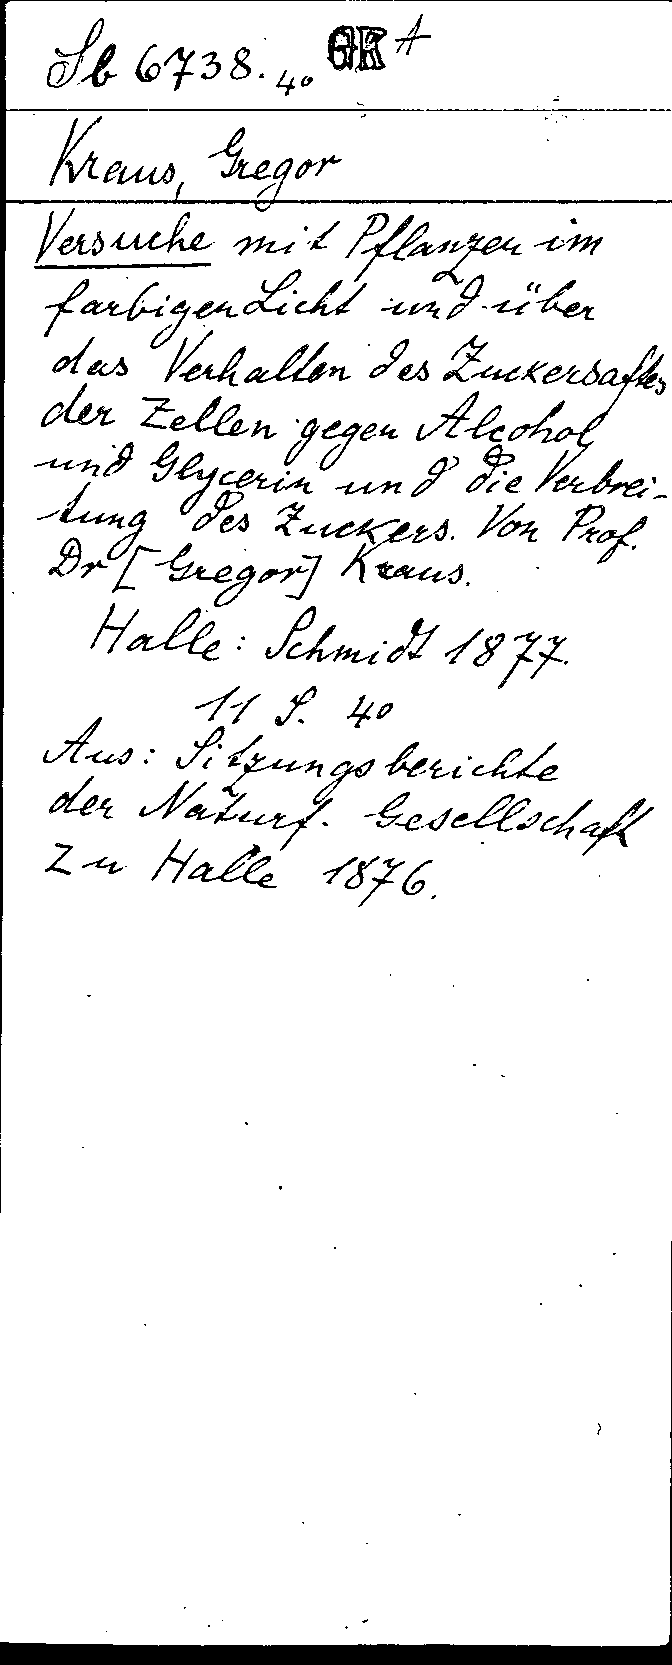 Sb 6738. 4o OR A
Kraus, Gregor
Versuche mit Pflanzen im
farbigen Licht und über
das Verhalten des Zuckersaftes
der Zellen gegen Alcohol
und Glycerin und die Verbrei-
tung des Zuckers. Von Prof.
Dr [Gregor] Kraus.
Halle: Schmidt 1877.
11 S. 4o
Aus: Sitzungsberichte
der Naturf. Gesellschaft
zu Halle 1876.